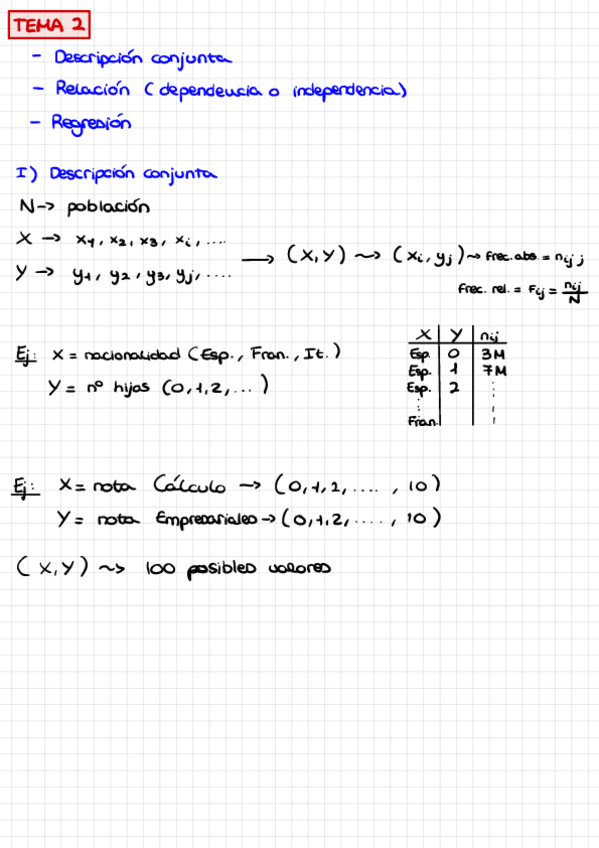 TEMA 2
- Descripción conjunta
- Relación (dependencia o independencia)
- Regresión
I) Descripción conjunta
N-> población
X -> x1, x2, x3, xi, ....
Y -> y1, y2, y3, yj, ....
-> (X,Y) ~> (xi, yj) ~> Frec. abs. = nij j
Frec. rel. = Fij = nij/N
Ej: X = nacionalidad (Esp., Fran., It.)
Y = nº hijos (0,1,2,...)
X Y nij
Esp. 0 3M
Esp. 1 7M
Esp. 2 ⋮
⋮
Fran.
Ej: X = nota Cálculo -> (0,1,2, ...., 10)
Y = nota Empresariales -> (0,1,2, ...., 10)
(X,Y) ~> 100 posibles valores